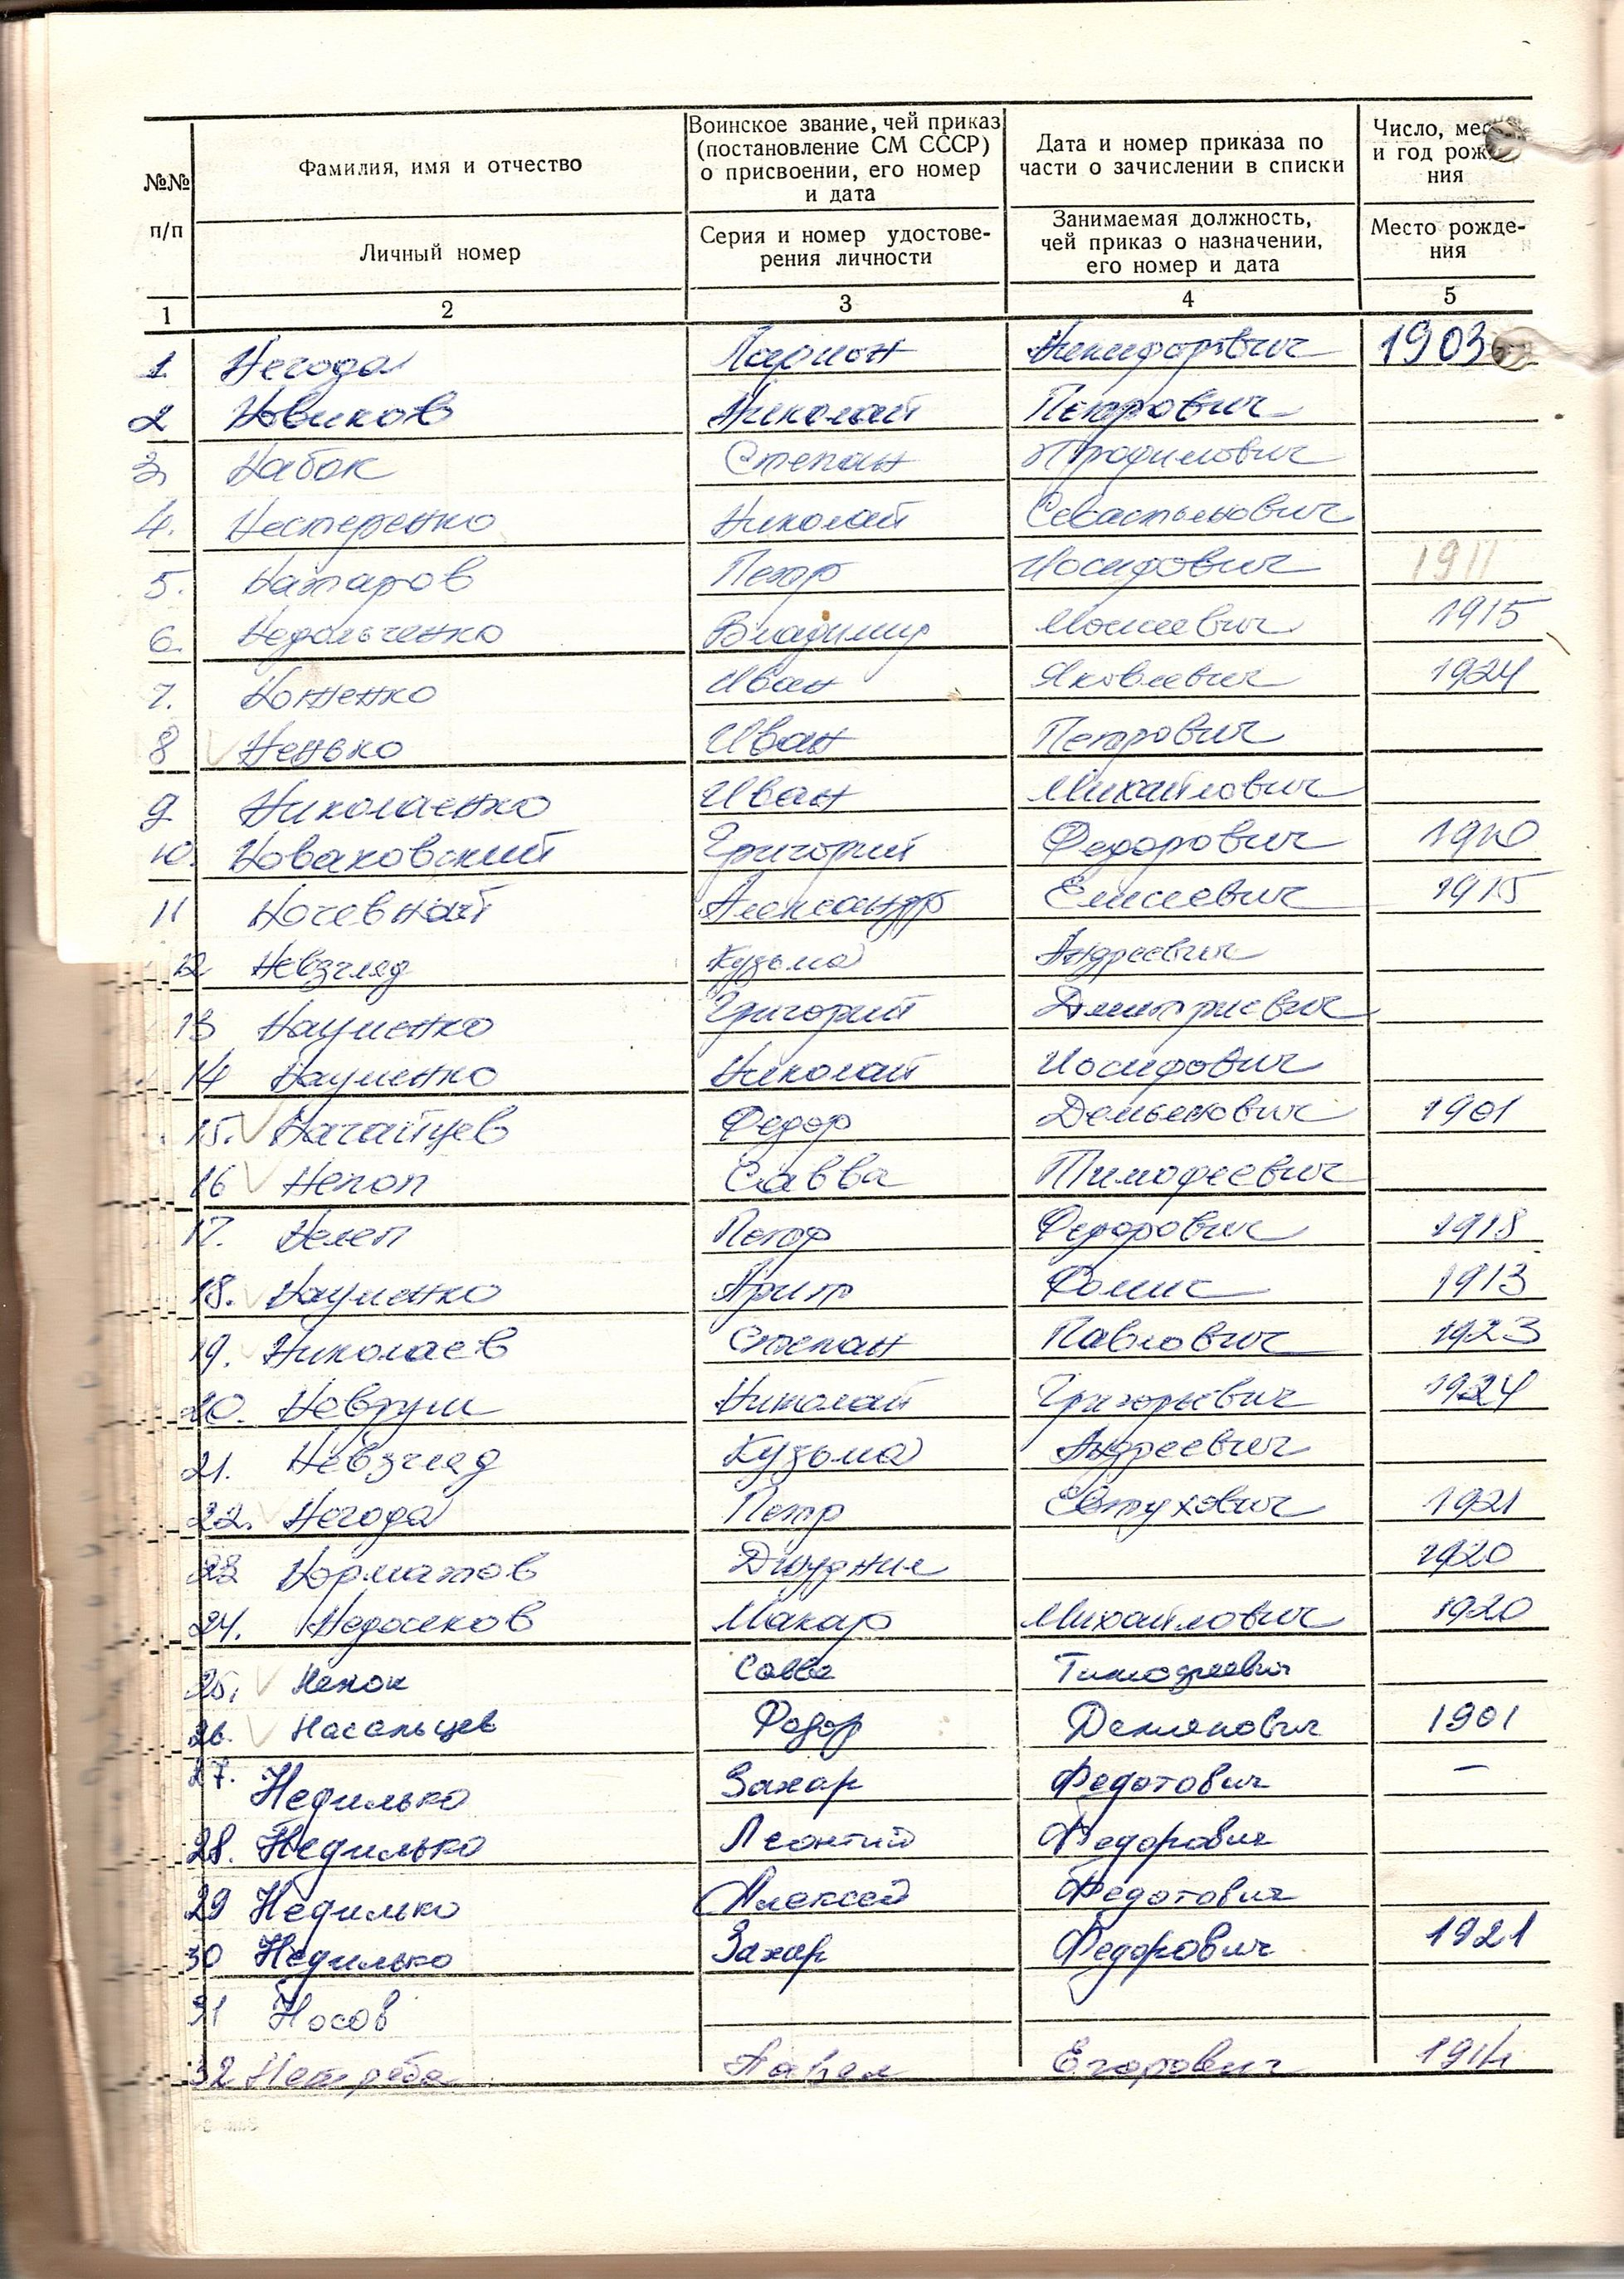 №№ п/п
Фамилия, имя и отчество
Личный номер
Воинское звание, чей приказ
(постановление СМ СССР)
о присвоении, его номер
и дата
Серия и номер удостове-
рения личности
Дата и номер приказа по
части о зачислении в списки
Занимаемая должность,
чей приказ о назначении,
его номер и дата
Число, мес
и год рож
ния
Место рожде-
ния
1 2 3 4 5
1. Негода Ларион Никифорович 1903
2 Новиков Николай Петрович
3. Набок Степан Трофимович
4. Нестеренко Николай Севастьянович
5. Натаров Петр Иосифович 1911
6. Недольченко Владимир Моисеевич 1915
7. Ноженко Иван Яковлевич 1924
8 Ненько Иван Петрович
9 Николаенко Иван Михайлович
10. Новаковский Григорий Федорович 1910
11 Ночевной Александр Елисеевич 1915
12 Невзгляд Кузьма Андреевич
13 Науменко Григорий Дмитриевич
14 Науменко Николай Иосифович
15. Федор Демьянович 1901
16 Непоп Савва Тимофеевич
17. Нелеп Петр Федорович 1918
18. Науменко 1913
19. Николаев Степан Павлович 1923
20. Николай Григорьевич 1924
21. Невзгляд Кузьма Андреевич
22. Негода Петр 1921
23 Норматов 1920
24. Недосеков Макар Михайлович 1920
25. Савва Тимофеевич
26. Федор Демянович 1901
27. Недилько Захар Федотович —
28. Недилько Леонтий Федорович
29 Недилько Алексей Федотович
30 Недилько Захар Федорович 1921
31 Носов
32 Нетреба Павел Егорович 1914